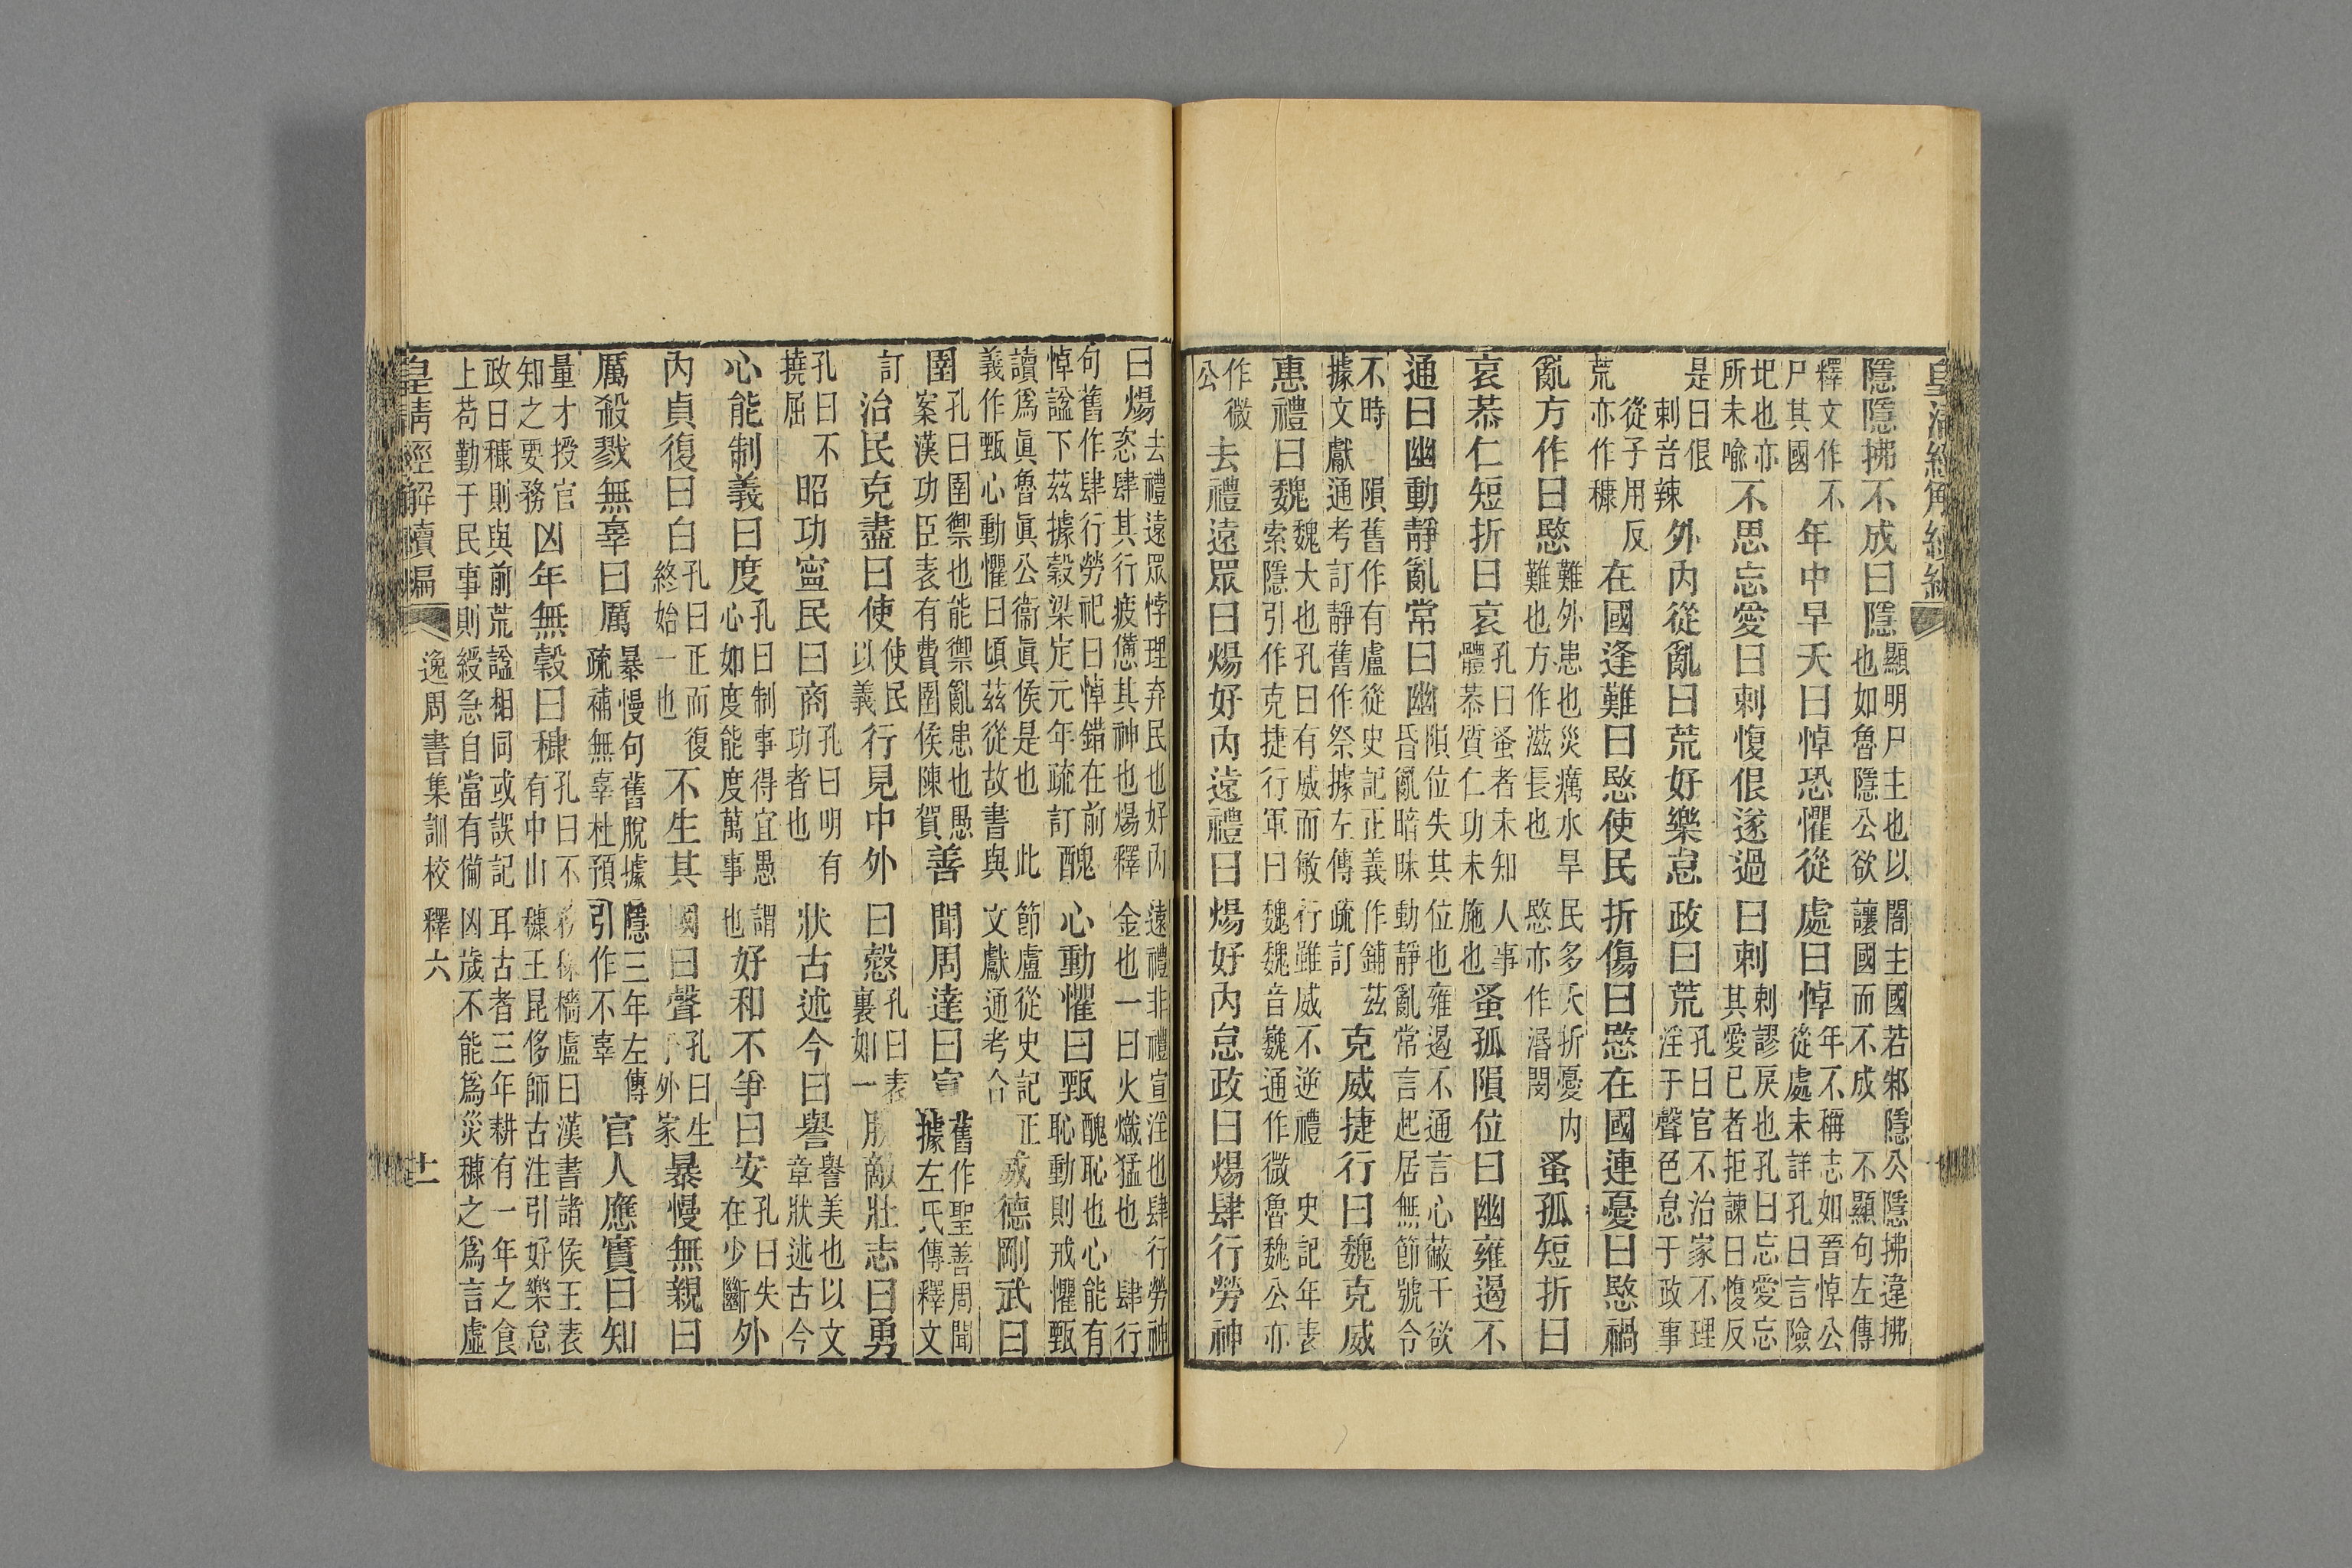 皇清經解續編
隱隱拂不成曰隱
顯明尸主也以闇主國若邪隱公隱拂違拂
也如魯隱公欲讓國而不成 不顯句左傳
釋文作不
尸其國
年中早夭曰悼恐懼從處曰悼
年不稱志如晉悼公
從處未詳孔曰言險
圯也亦
所未喻
不思忘愛曰刺愎佷遂過曰刺
刺謬戾也孔曰忘愛忘
其愛已者拒諫曰愎反
是曰佷
刺音辣
外内從亂曰荒好樂怠政曰荒
孔曰官不治家不理
淫于聲色怠于政事
荒 從子用反
亦作穅
在國逢難曰愍使民折傷曰愍在國連憂曰愍禍
亂方作曰愍
難外患也災癘水旱民多夭折憂内
難也方作滋長也愍亦作湣閔
蚤孤短折曰
哀恭仁短折曰哀
孔曰蚤者未知人事
體恭質仁功未施也
蚤孤隕位曰幽雍遏不
通曰幽動靜亂常曰幽
隕位失其位也雍遏不通言心蔽干欲
昏亂暗昧動靜亂常言起居無節號令
不時 隕舊作有盧從史記正義作鋪茲
據文獻通考訂靜舊作祭據左傳疏訂
克威捷行曰魏克威
惠禮曰魏
魏大也孔曰有威而敏行雖威不逆禮 史記年表
索隱引作克捷行軍曰魏魏音巍通作微魯魏公亦
作微
公
去禮遠眾曰煬好内遠禮曰煬好内怠政曰煬肆行勞神
曰煬
去禮遠眾悖理弃民也好内遠禮非禮宣淫也肆行勞神
恣肆其行疲憊其神也煬釋金也一曰火熾猛也 肆行
句舊作肆行勞祀曰悼錯在前
悼謚下茲據穀梁定元年疏訂
醜心動懼曰甄
醜恥也心能有
恥動則戒懼甄
讀爲真魯真公衞真侯是也 此節盧從史記正
義作甄心動懼曰頃茲從故書與文獻通考合
威德剛武曰
圉
孔曰圉禦也能禦亂患也愚
案漢功臣表有費圉侯陳賀
善聞周達曰宣
舊作聖善周聞
據左氏傳釋文
訂
治民克盡曰使
使民
以義
行見中外曰慤
孔曰表
裏如一
勝敵壯志曰勇
孔曰不
撓屈
昭功寧民曰商
孔曰明有
功者也
狀古述今曰譽
譽美也以文
章狀述古今
心能制義曰度
孔曰制事得宜愚謂
心如度能度萬事也
好和不爭曰安
孔曰失
在少斷
外
内貞復曰白
孔曰正而復
終始一也
不生其國曰聲
孔曰生
于外家
暴慢無親曰
厲殺戮無辜曰厲
暴慢句舊脫據隱三年左傳
疏補無辜杜預引作不辜
官人應實曰知
量才授官
知之要務
凶年無穀曰穅
孔曰不務稼穡盧曰漢書諸侯王表
有中山穅王昆侈師古注引好樂怠
政曰穅則與前荒謚相同或誤記耳古者三年耕有一年之食
上苟勤于民事則緩急自當有備凶歲不能爲災穅之爲言虛
皇清經解續編 逸周書集訓校釋六 十一